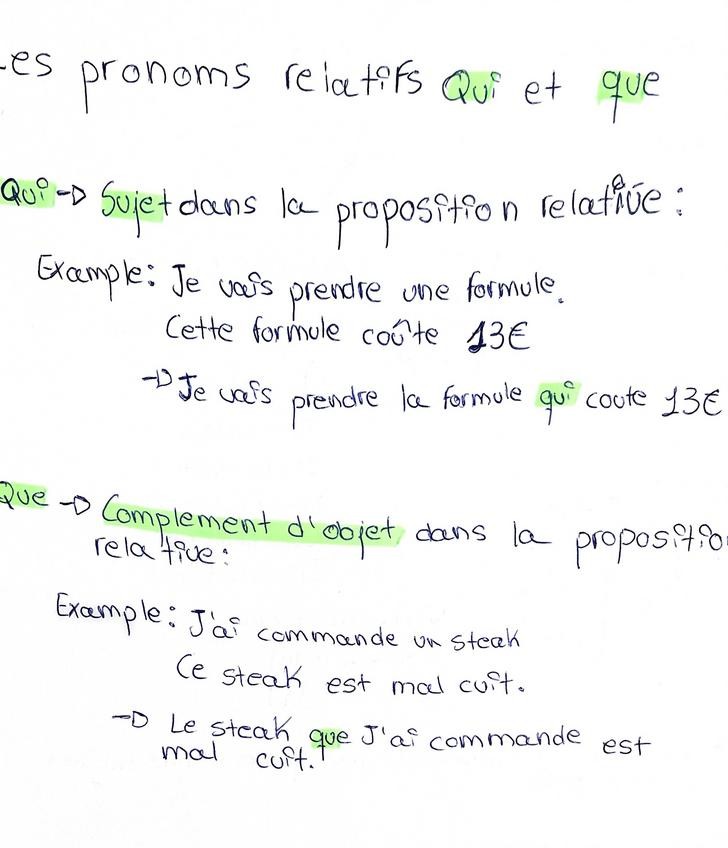 Les pronoms relatifs Qui et que
Qui → Sujet dans la proposition relative :
Example : Je vais prendre une formule.
Cette formule coûte 13€
→ Je vais prendre la formule qui coute 13€
Que → Complement d'objet dans la propositio
relative :
Example : J'ai commande un steak
Ce steak est mal cuit.
→ Le steak que J'ai commande est
mal cuit.